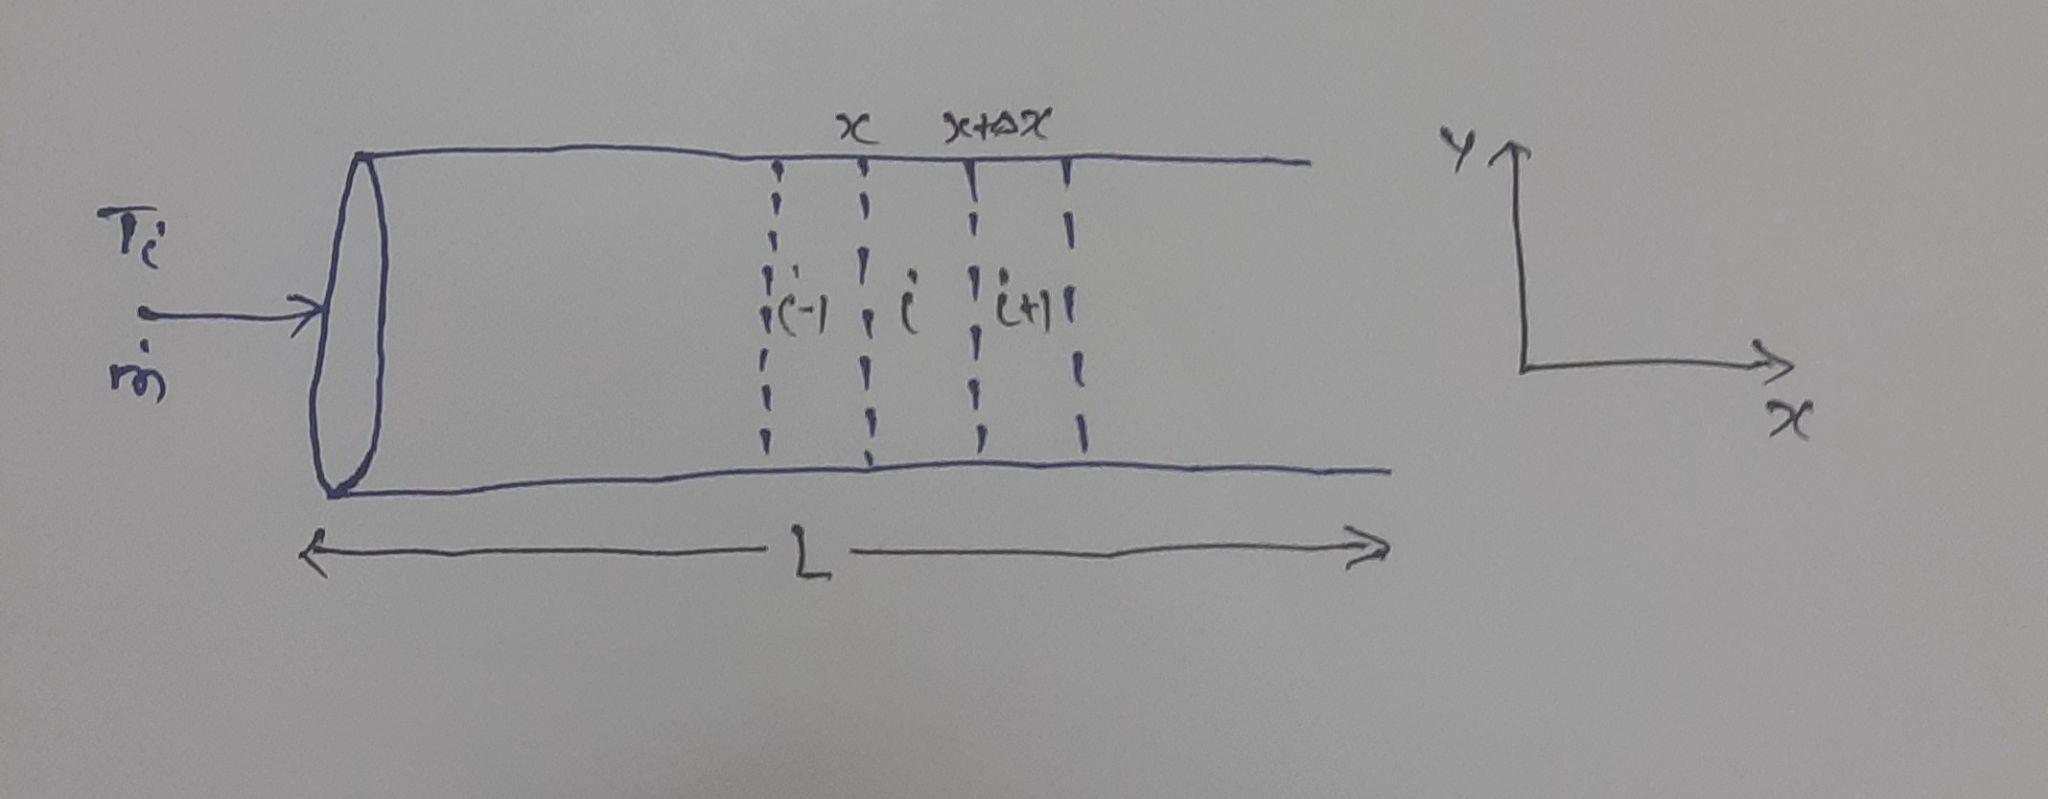 x x+Δx
y
Ti
i-1 i i+1
ṁ
x
L